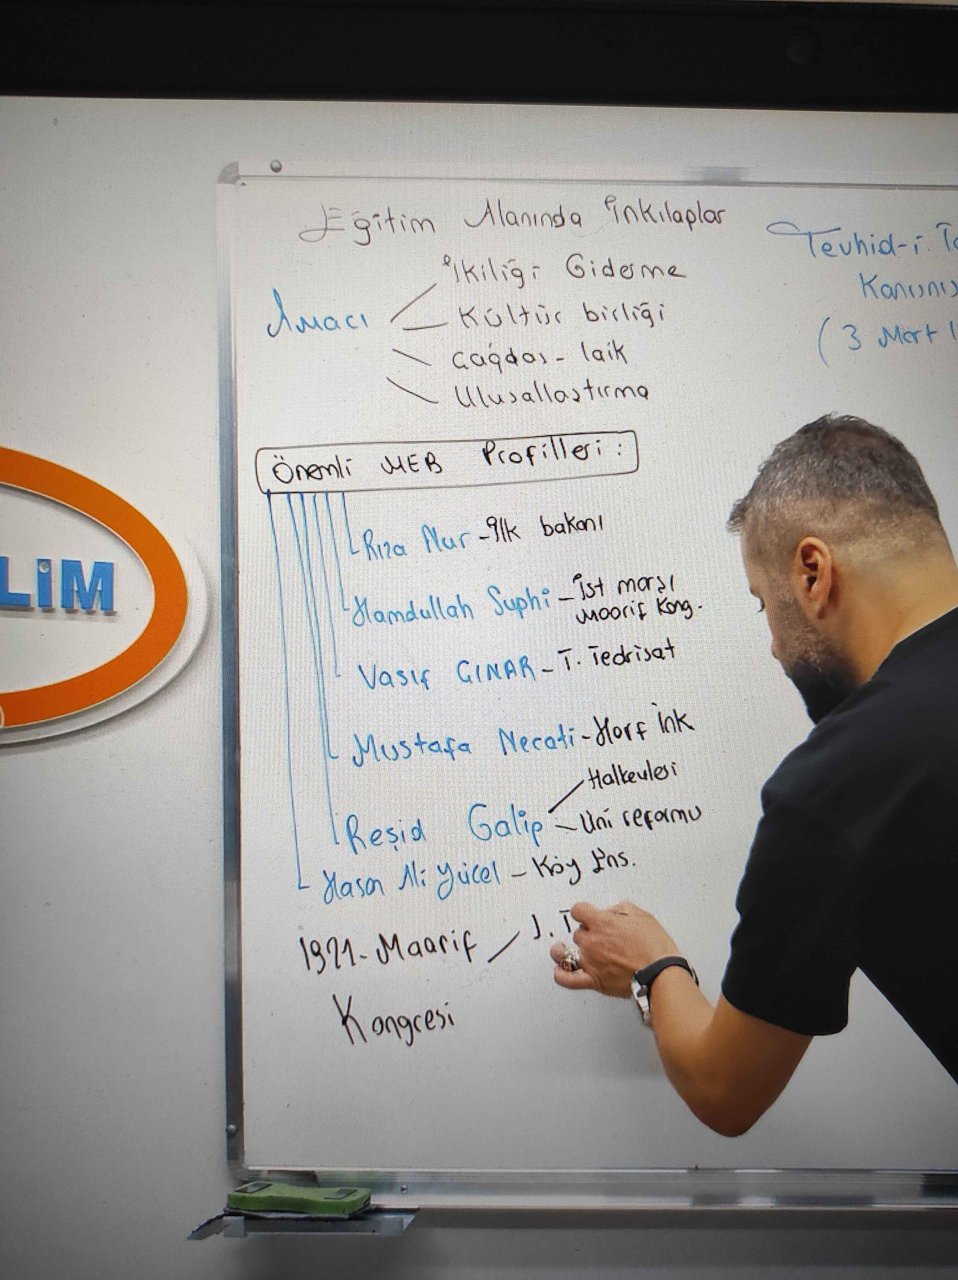 Eğitim Alanında İnkılaplar
Amacı
İkiliği Giderme
Kültür birliği
Çağdaş - laik
Ulusallaştırma
Tevhid-i.
Kanunu
(3 Mart
Önemli MEB Profilleri:
Rıza Nur - İlk bakanı
Hamdullah Suphi - İst marşı
Maarif Kong.
Vasıf ÇINAR - T. Tedrisat
Mustafa Necati - Harf İnk
Reşid Galip
Halkevlesi
Üni reformu
Hasan Ali Yücel - Köy Ens.
1921 - Maarif
Kongresi
LİM